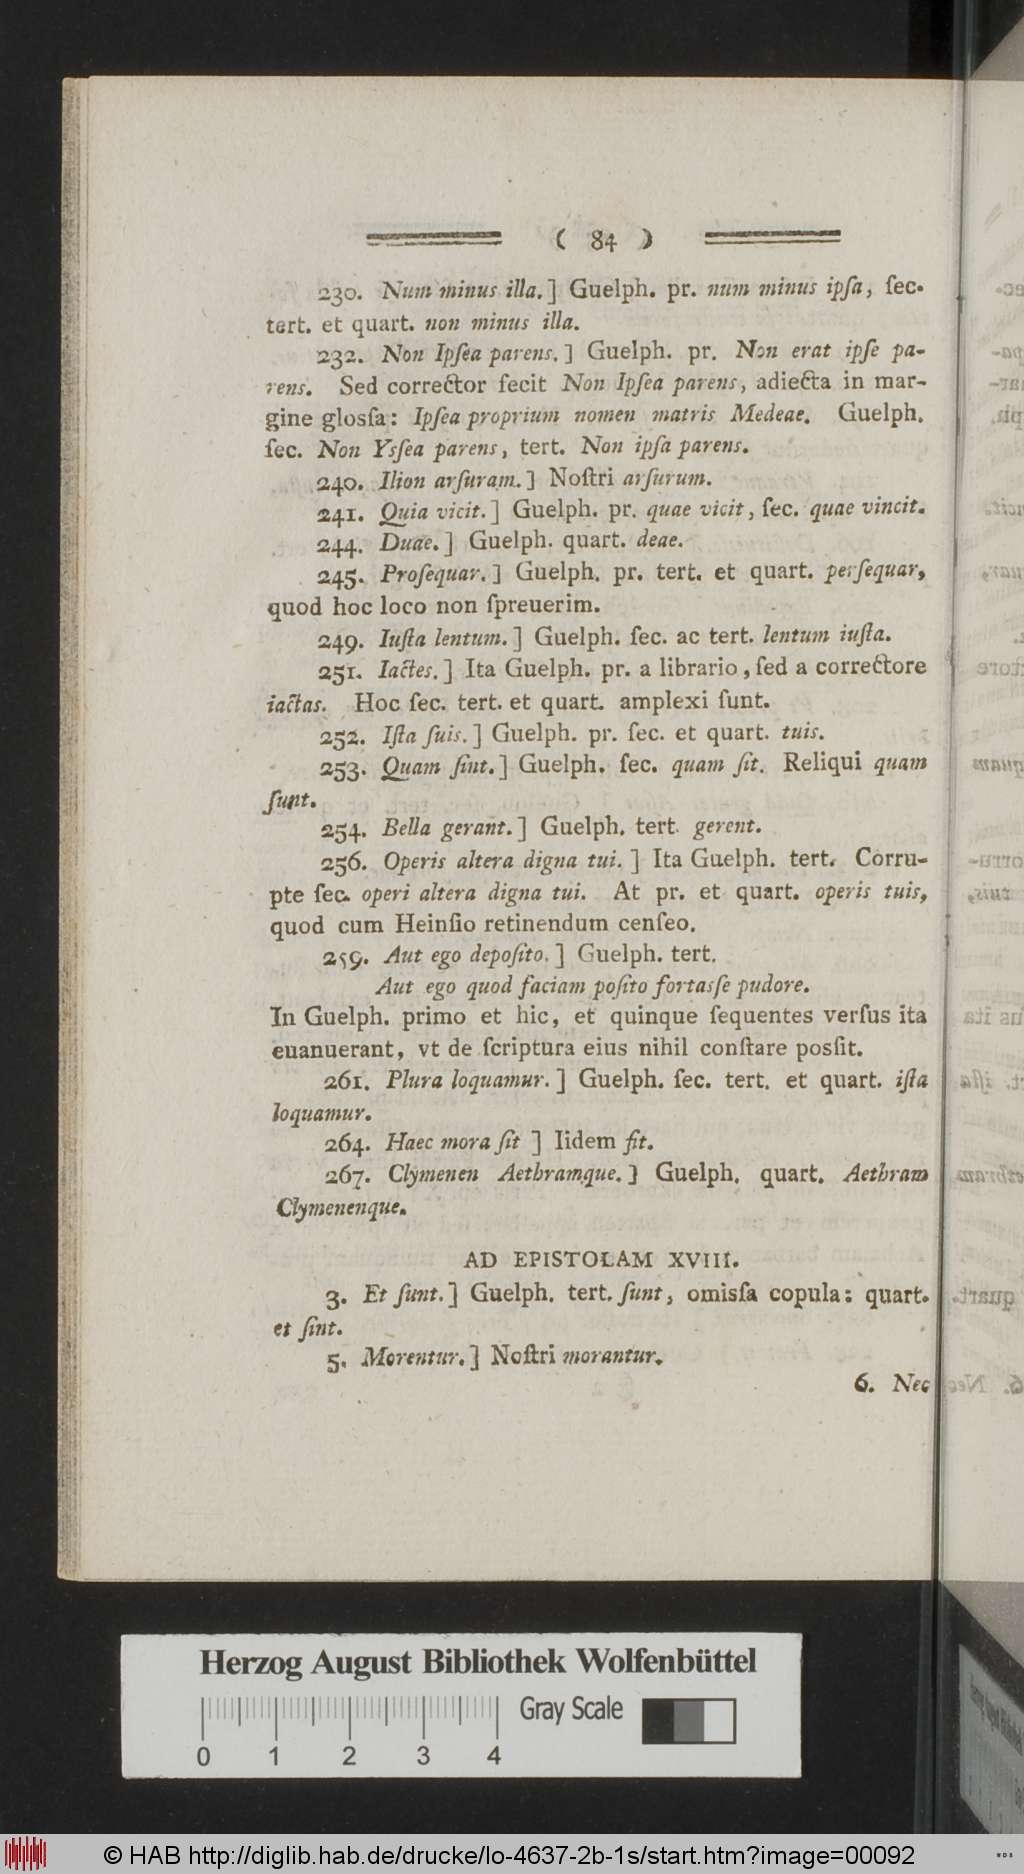 ( 84 )
230. Num minus illa.] Guelph. pr. num minus ipſa, ſec.
tert. et quart. non minus illa.
232. Non Ipſea parens.] Guelph. pr. Non erat ipſe pa-
rens. Sed corrector fecit Non Ipſea parens, adiecta in mar-
gine gloſſa: Ipſea proprium nomen matris Medeae. Guelph.
ſec. Non Ysſea parens, tert. Non ipſa parens.
240. Ilion arſuram.] Noſtri arſurum.
241. Quia vicit.] Guelph. pr. quae vicit, ſec. quae vincit.
244. Duae.] Guelph. quart. deae.
245. Proſequar.] Guelph. pr. tert. et quart. perſequar,
quod hoc loco non ſpreuerim.
249. Iuſta lentum.] Guelph. ſec. ac tert. lentum iuſta.
251. Iactes.] Ita Guelph. pr. a librario, ſed a correctore
iactas. Hoc ſec. tert. et quart. amplexi ſunt.
252. Iſta ſuis.] Guelph. pr. ſec. et quart. tuis.
253. Quam ſint.] Guelph. ſec. quam ſit. Reliqui quam
ſunt.
254. Bella gerant.] Guelph. tert. gerent.
256. Operis altera digna tui.] Ita Guelph. tert. Corru-
pte ſec. operi altera digna tui. At pr. et quart. operis tuis,
quod cum Heinſio retinendum cenſeo.
259. Aut ego depoſito.] Guelph. tert.
Aut ego quod faciam poſito fortasſe pudore.
In Guelph. primo et hic, et quinque ſequentes verſus ita
euanuerant, vt de ſcriptura eius nihil conſtare posſit.
261. Plura loquamur.] Guelph. ſec. tert. et quart. iſta
loquamur.
264. Haec mora ſit ] Iidem fit.
267. Clymenen Aethramque.] Guelph. quart. Aethram
Clymenenque.
AD EPISTOLAM XVIII.
3. Et ſunt.] Guelph. tert. ſunt, omisſa copula: quart.
et ſint.
5. Morentur.] Noſtri morantur.
6. Nec
Herzog August Bibliothek Wolfenbüttel
0 1 2 3 4 Gray Scale
© HAB http://diglib.hab.de/drucke/lo-4637-2b-1s/start.htm?image=00092